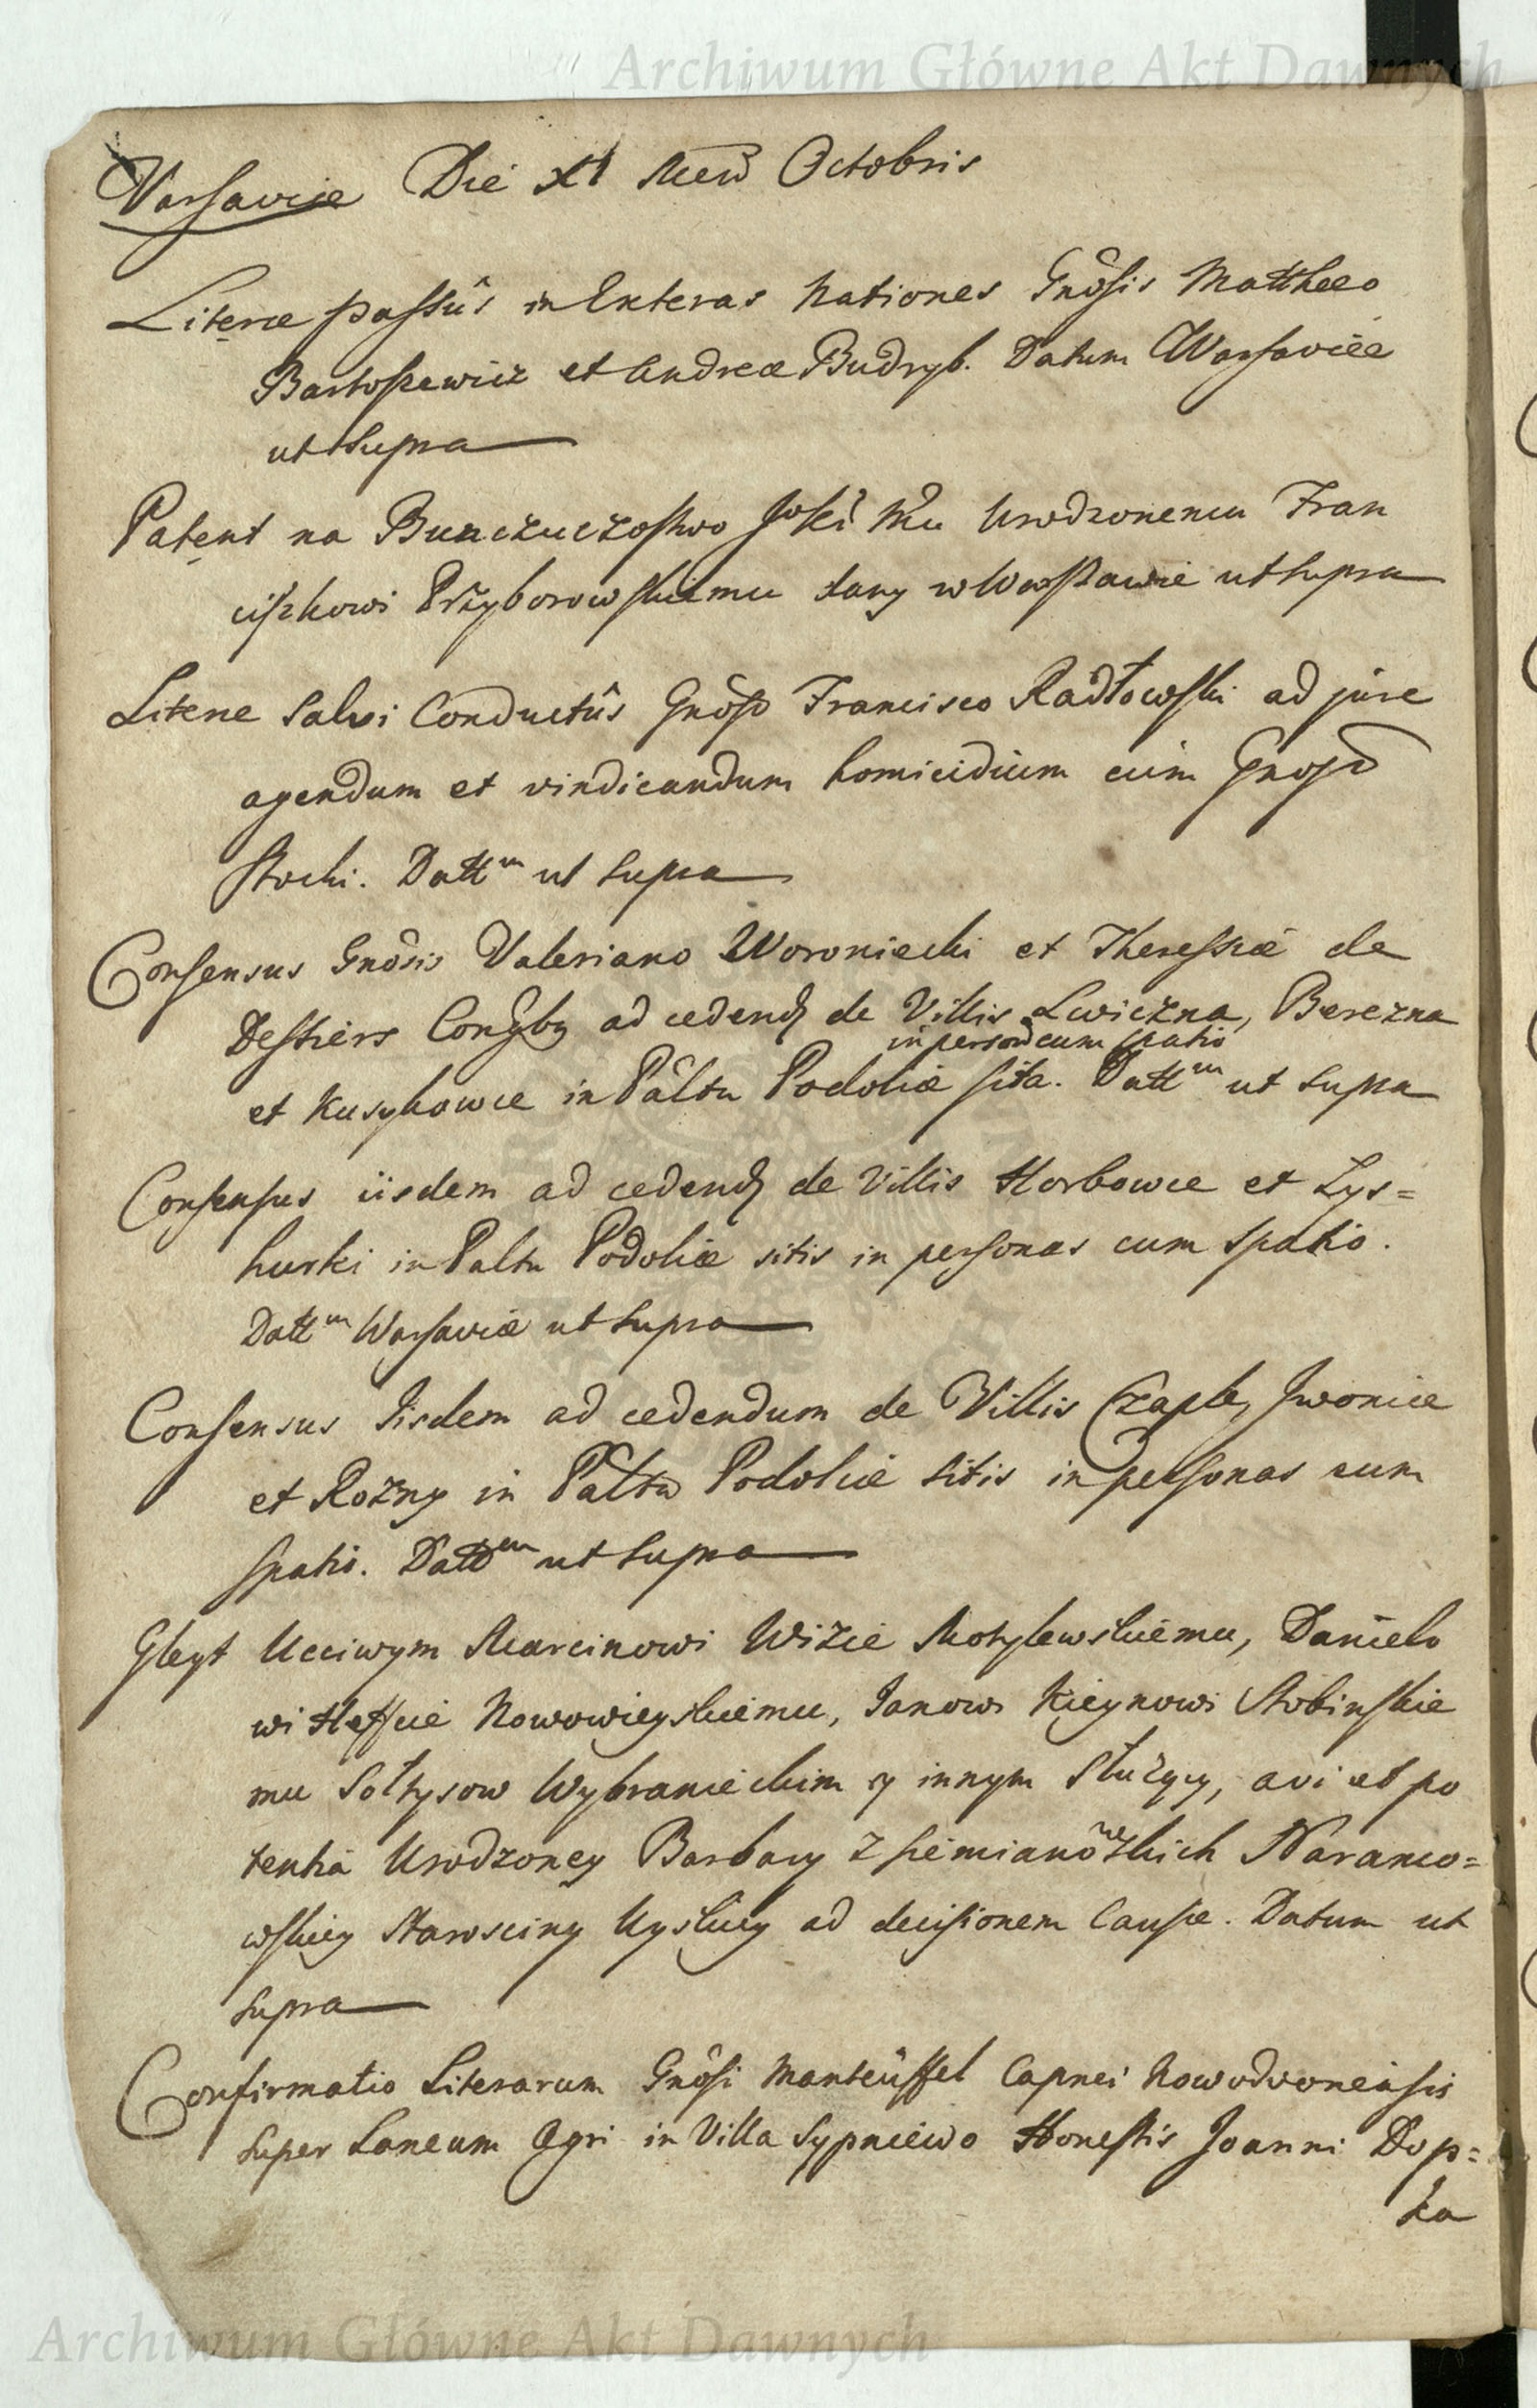 Archiwum Główne Akt Dawnych
Varsaviæ Die XI Mens Octobris
Literæ passûs in Exteras Nationes Gnosis Mattheo
Bartoszewicz et Andreæ Budryk. Datum Warsaviæ
ut supra
Patent na Bunczuczostwo JoKr Mci Urodzonemu Fran
ciszkowi Przyborowskiemu dany w Warszawie ut supra
Literæ Salvi Conductûs Gnoso Francisco Radłowski ad jure
agendum et vindicandum homicidium cum Gnoso
Stocki. Datt um ut supra
Consensus Gnosis Valeriano Woroniecki et Theressiæ de
Desthiers Congby ad cedend de Villis Lwiczna, Berezna
in person cum spatio
et Kusykowce in Paltu Podoliæ sita. Datt um ut supra
Consensus iisdem ad cedend de Villis Horbowce et Lys=
hurki in Paltu Podoliæ sitis in personas cum spatio.
Datt um Warsaviæ ut supra
Consensus Iisdem ad cedendum de Villis Czaple, Jwonice
et Rożny in Paltu Podoliæ sitis in personas cum
spatio. Datt um ut supra
Gleyt Ucciwym Marcinowi Wizie Motylewskiemu, Danielo
wi Heffcie Nowowieyskiemu, Janowi Kieynowi Stobinskie
mu Sołtysow Wybranieckim y innym Służący, a vi et po
tentia Urodzoney Barbary z Siemianowskich Naramo=
wskiey Starosciny Uyskiey ad decisionem Causæ. Datum ut
supra
Confirmatio Literarum Gnosi Manteuffel Capnei Nowodvorensis
super Laneum Agri in Villa Sypniewo Honestis Joanni Dop=
ka
Archiwum Główne Akt Dawnych